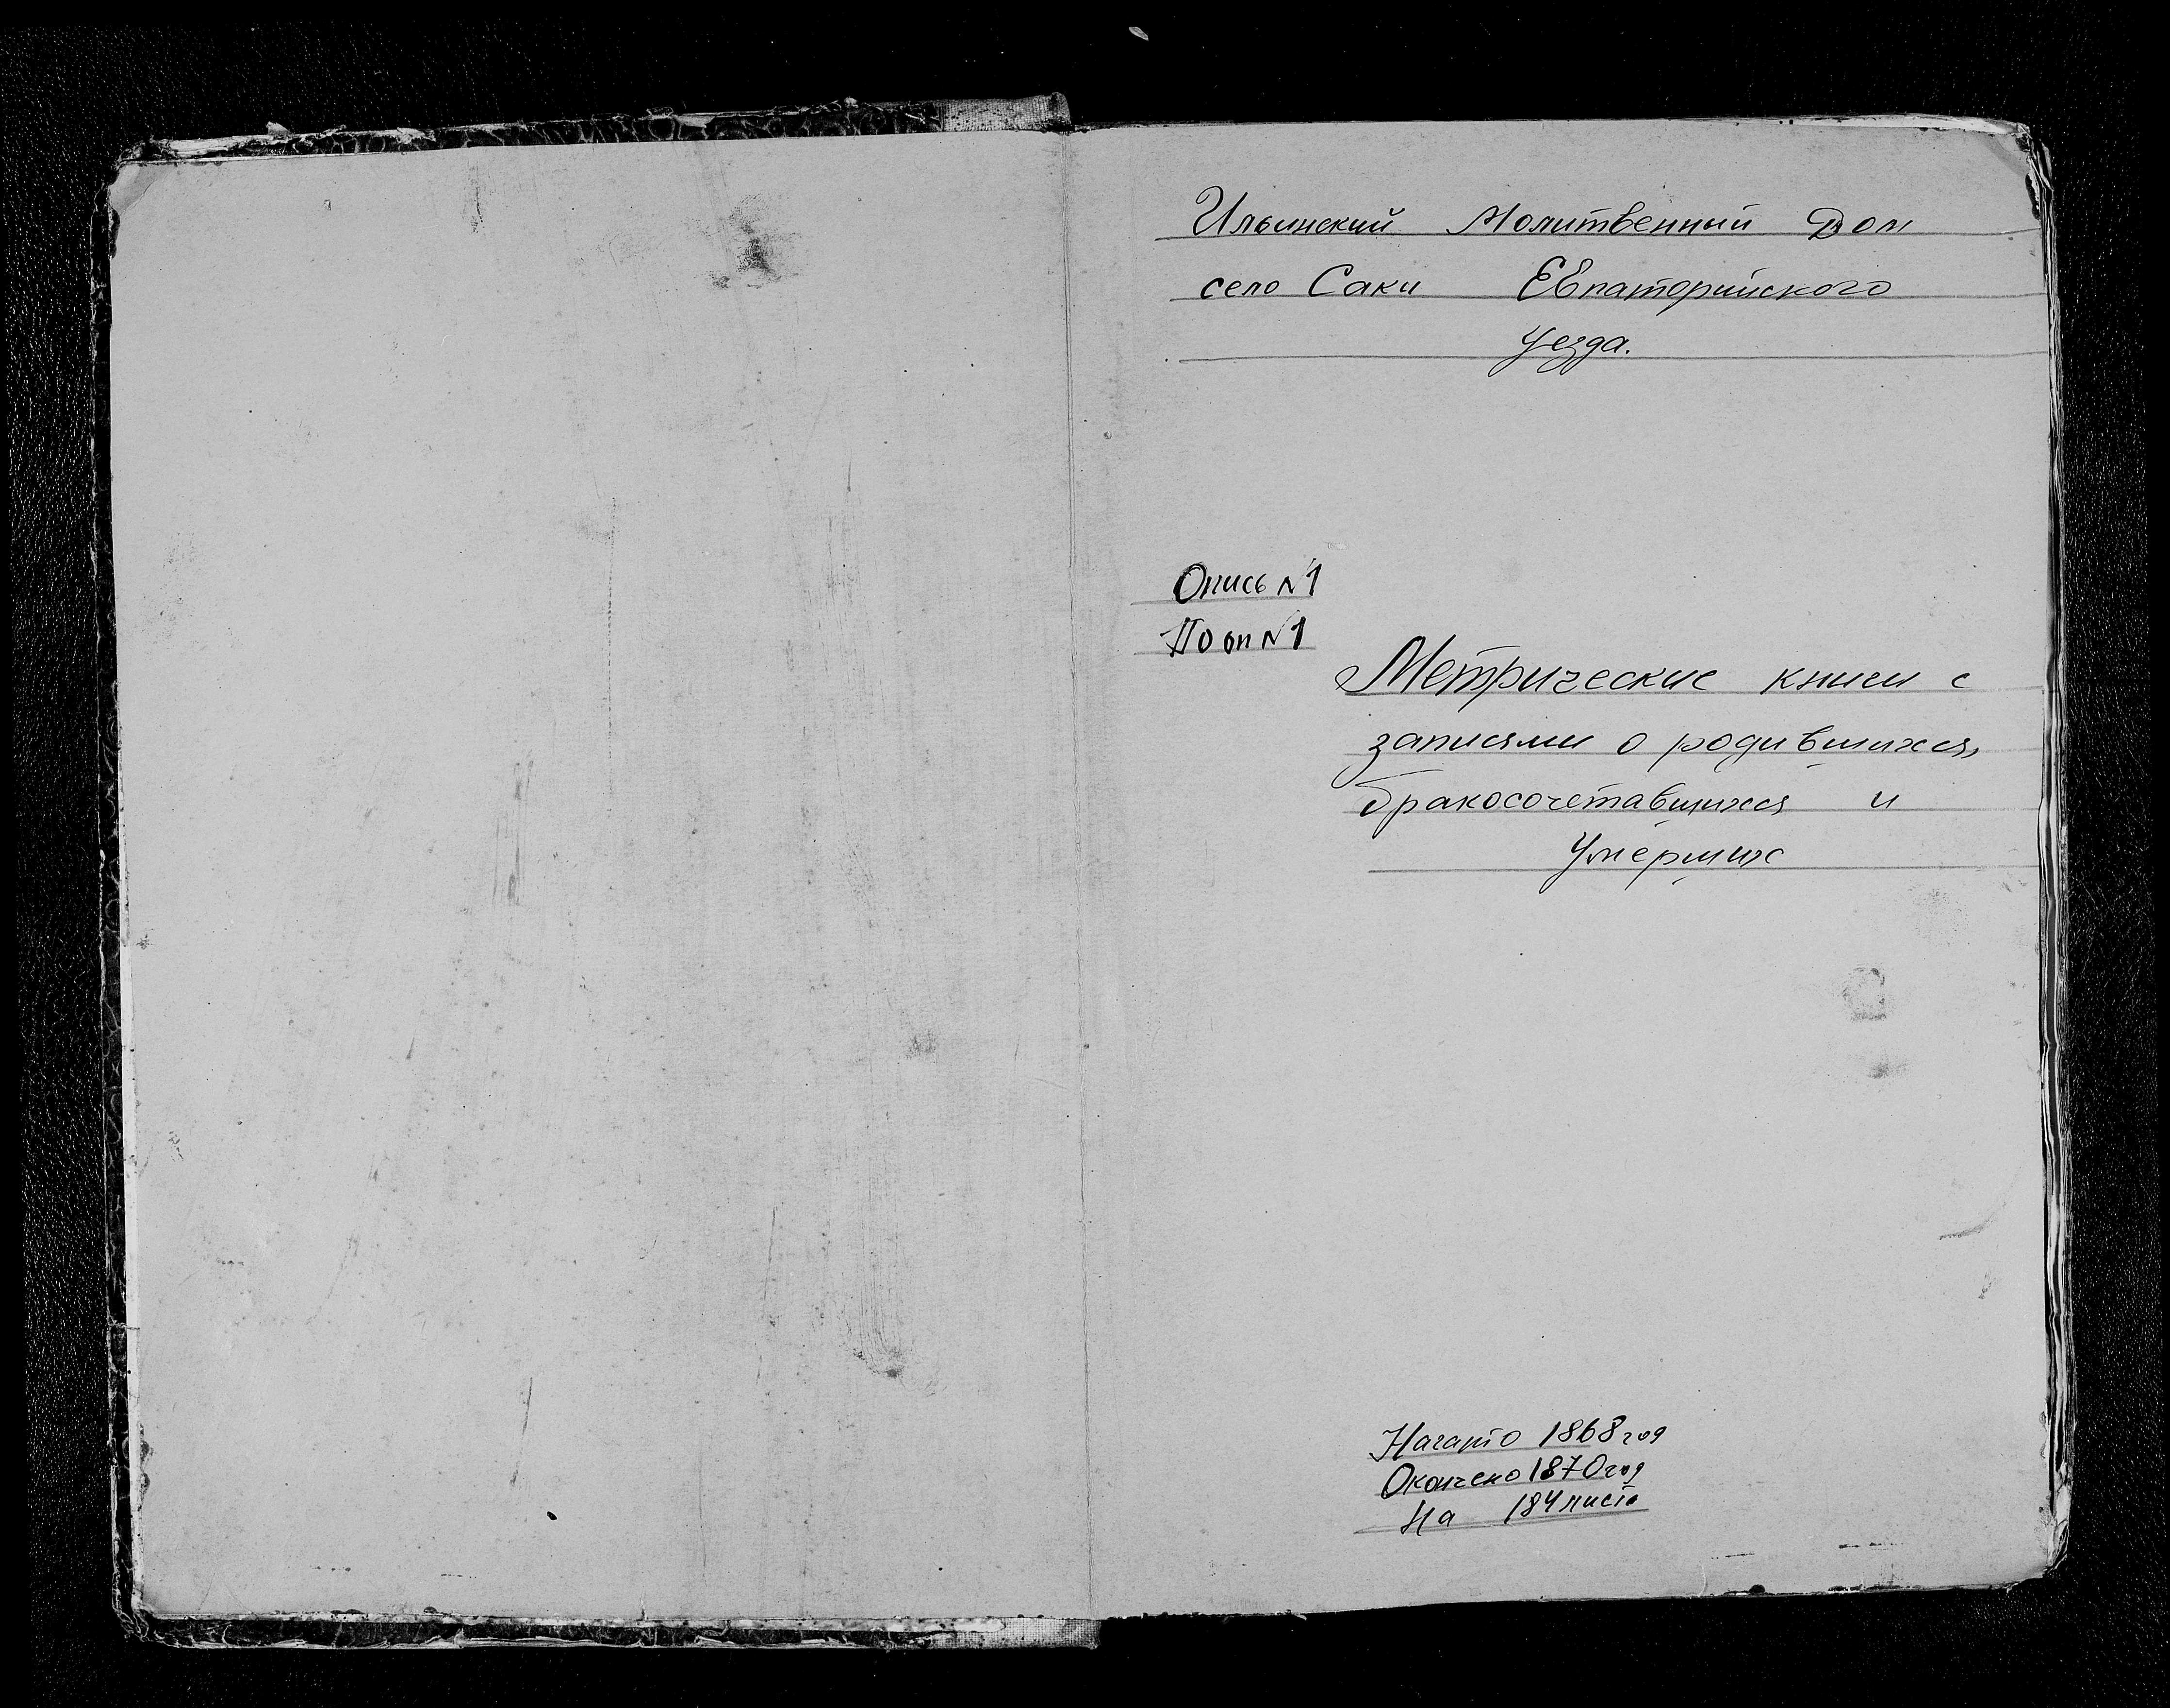 Ильинский Молитвенный Дом
село Саки Евпаторийского
уезда.
Опись №1
По оп №1
Метрические книги с
записями о родившихся,
бракосочетавшихся и
умерших
Начато 1868 год
Окончено 1870 год
На 184 листа